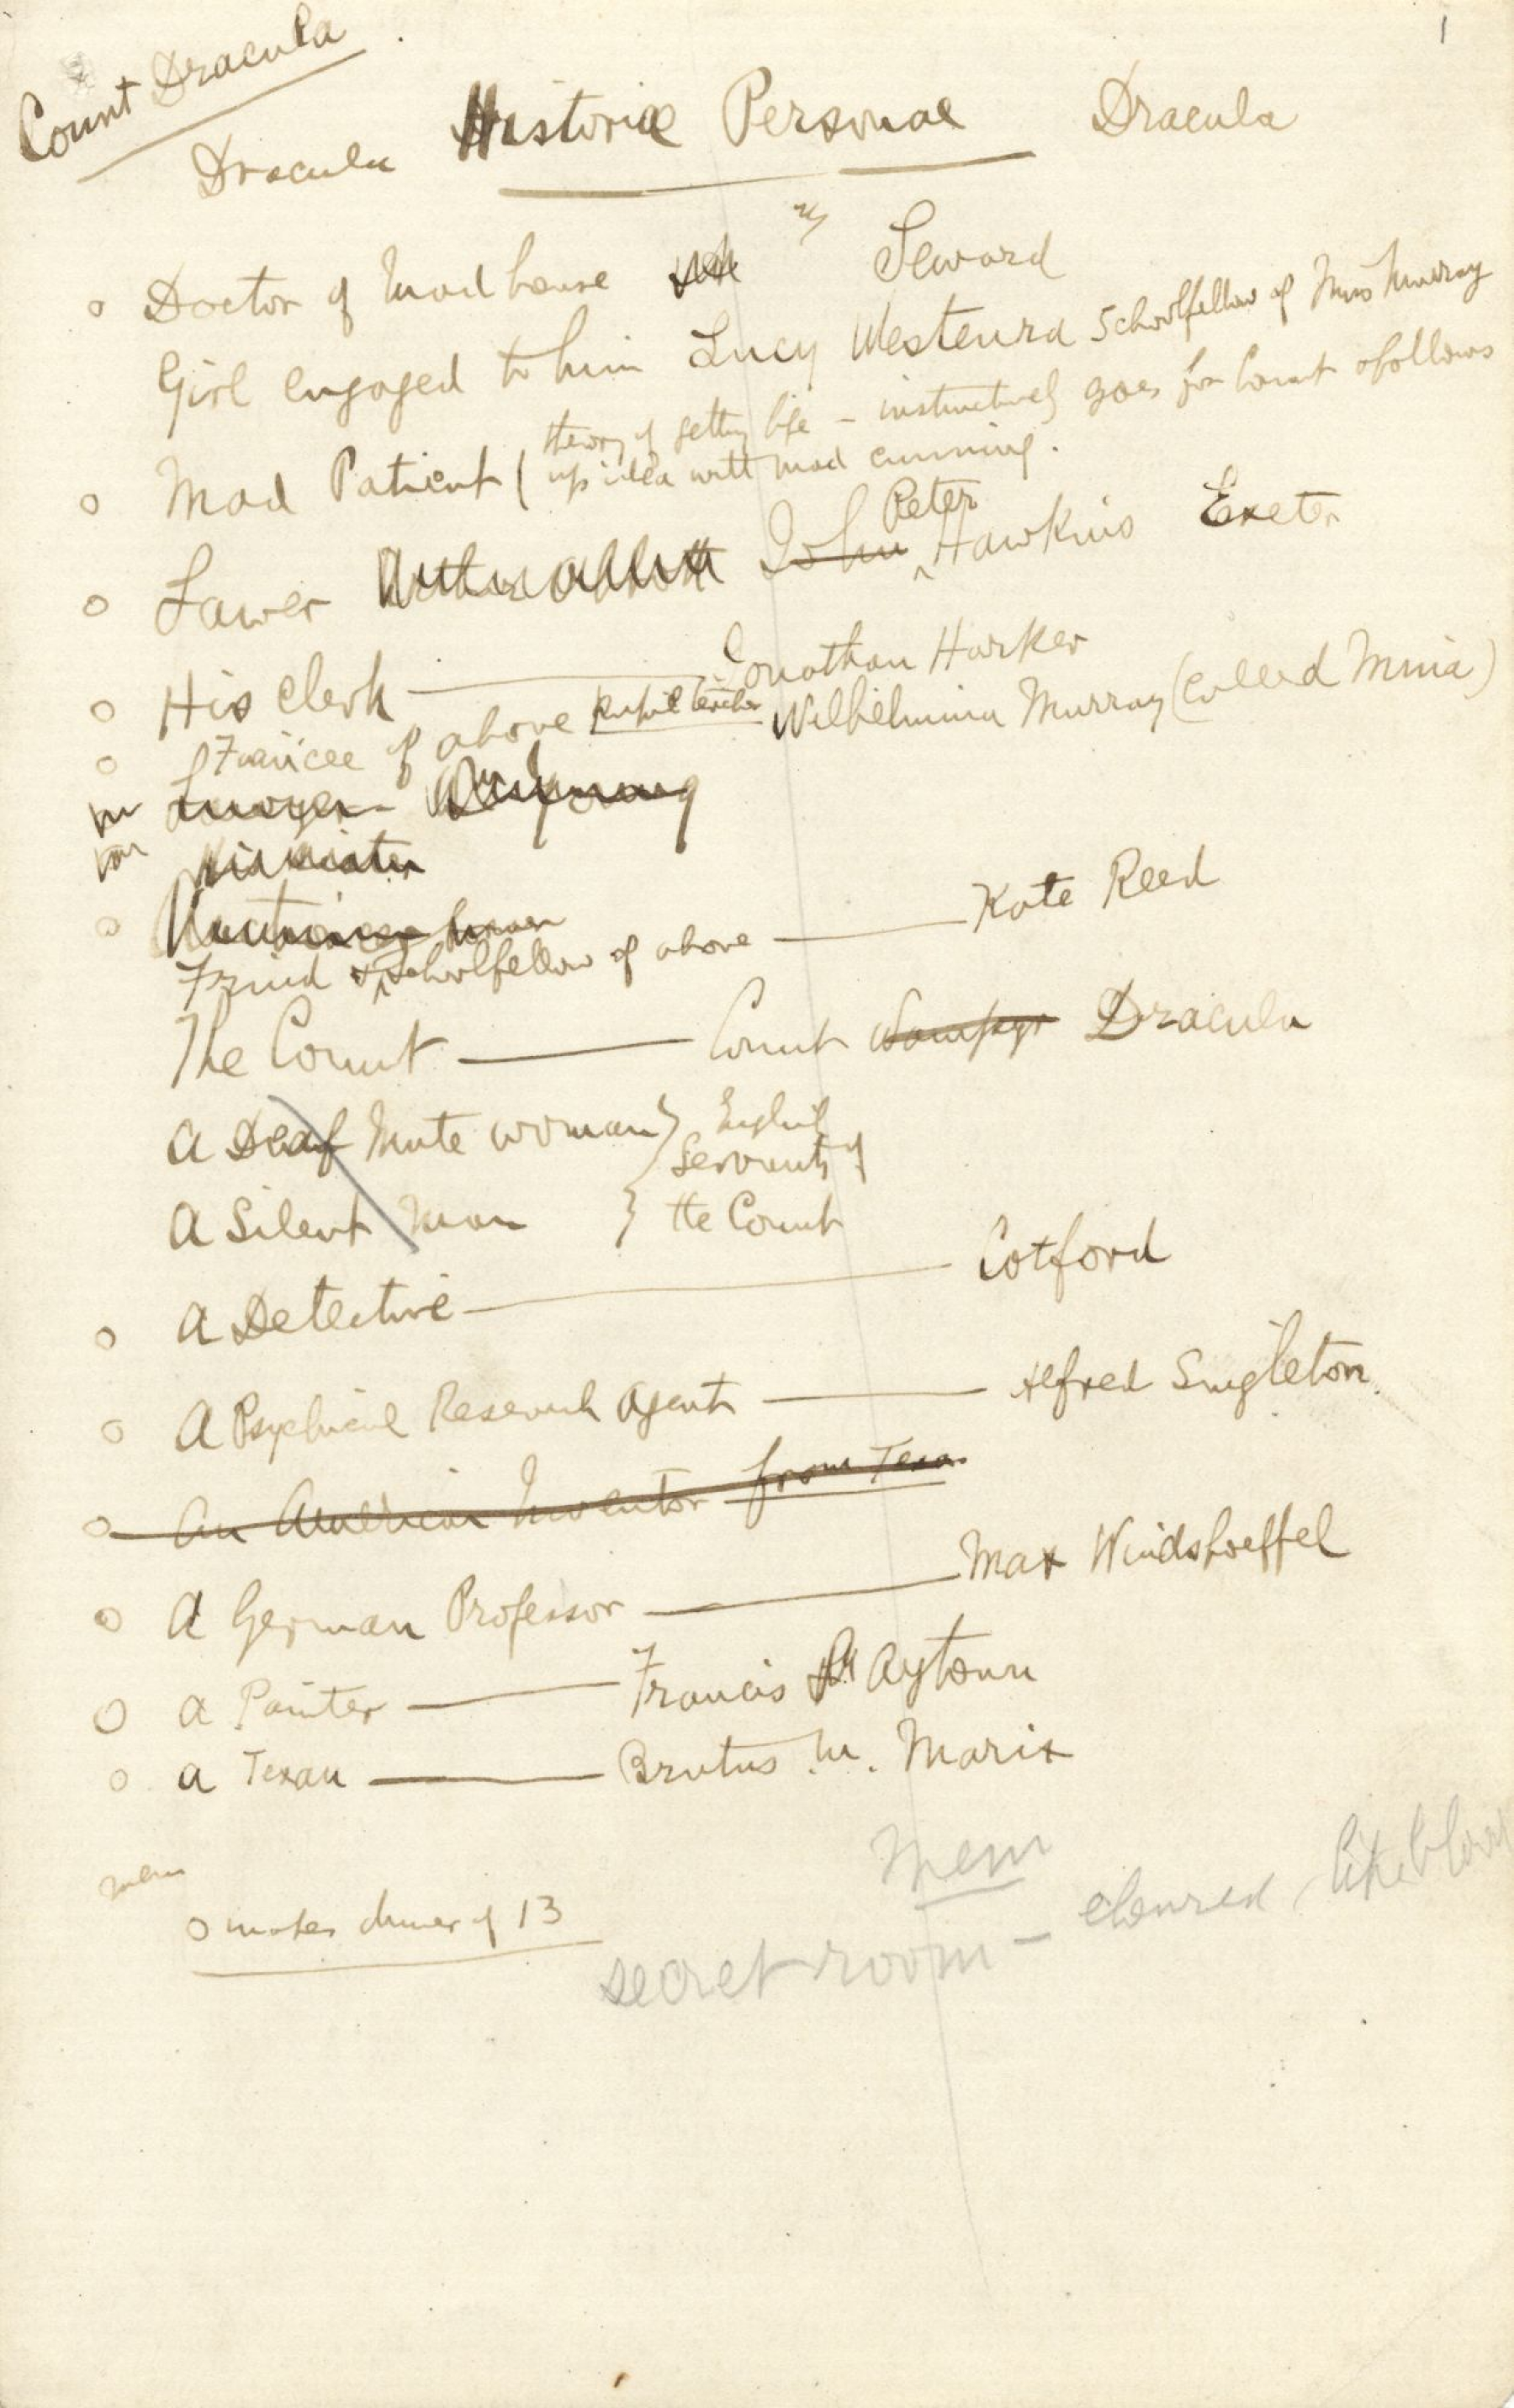 1
Count Dracula
Dracula Historiæ Personae Dracula
Doctor of Mad house Seward
Girl engaged to him Lucy Westenra Schoolfellow of Miss Murray
Mad Patient (theory of getting life – instinctively goes for Count & follows
up idea with mad cunning.
Lawer Arthur Abbott John Peter Hawkins Exeter
His Clerk — Jonathan Harker
Fiancee of above pupil teacher Wilhelmina Murray (called Mina)
Lawyer
His Sister
Friend & Schoolfellow of above — Kate Reed
The Count — Count Wampyr Dracula
A Deaf Mute woman } English
servants of
A Silent Man } the Count
A Detective — Cotford
A Psychical Research Agent — Alfred Singleton.
An American Inventor from Texas
A German Professor — Max Windshoeffel
A Painter — Francis Aytown
A Texan — Brutus M. Marix
Mem
mem
secret room – coloured like blood